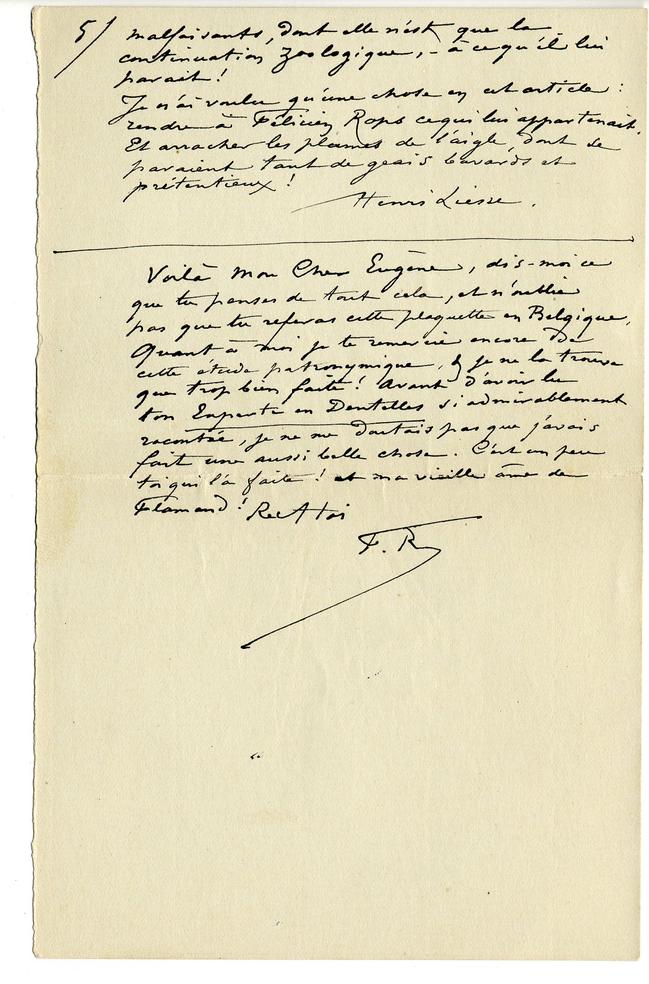 5/ malfaisants, dont elle n'est que la
continuation zoologique, - à ce qu'il lui
parait !
Je n'ai voulu qu'une chose en cet article :
rendre à Félicien Rops ce qui lui appartenait.
Et arracher les plumes de l'aigle, dont se
paraient tant de geais bavards et
prétentieux !
Henri Liesse.
Voilà Mon Cher Eugène, dis-moi ce
que tu penses de tout cela, et n'oublie
pas que tu referas cette plaquette en Belgique.
Quant à moi je te remercie encore de
cette étude patronymique, & je ne la trouve
que trop bien faite ! Avant d'avoir lu
ton Enterrée en Dentelles si admirablement
racontée, je ne me doutais pas que j'avais
fait une aussi belle chose. C'est un peu
toi qui l'a faite ! et ma vieille âme de
Flamand ! Rec A toi
F. R